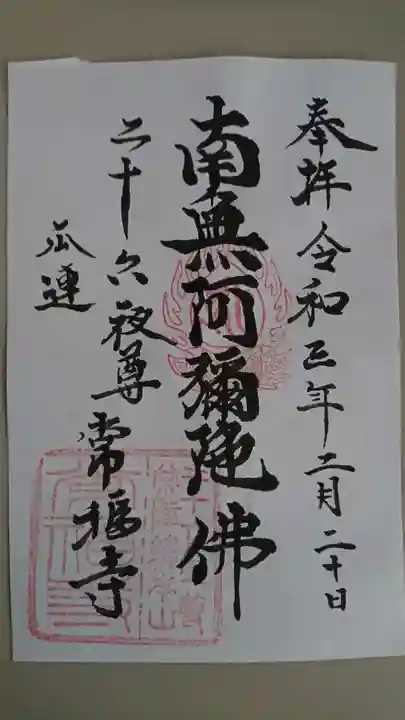 奉拝 令和三年二月二十日
南無阿彌陀佛
二十六夜尊 常福寺
瓜連